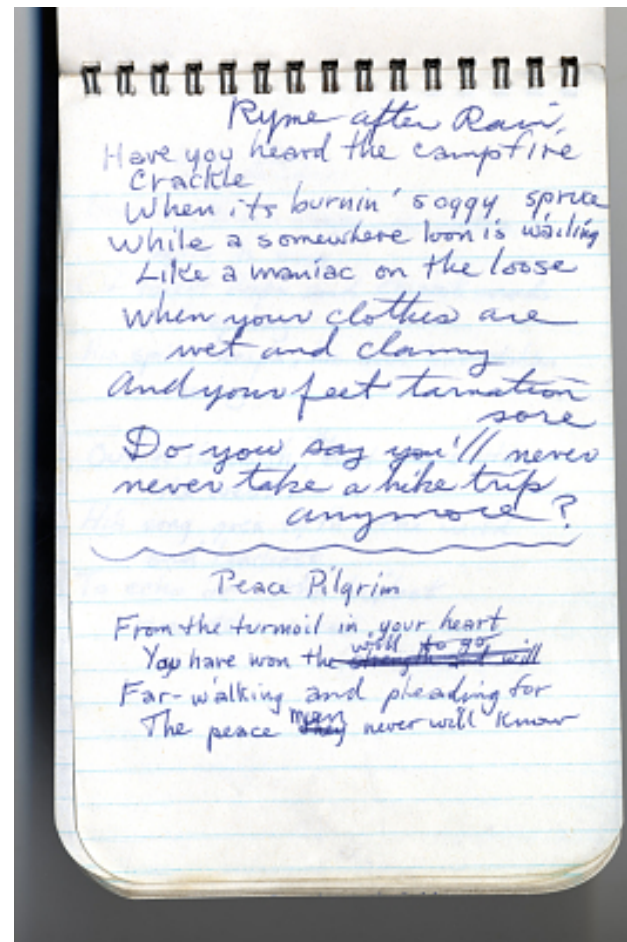 Ryme after Rain,
Have you heard the campfire
Crackle
When its burnin' soggy spruce
While a somewhere loon is wailing
Like a maniac on the loose
When your clothes are
wet and clammy
And your feet tarnation
sore
Do you say you'll never
never take a hike trip
anymore?
Peace Pilgrim
From the turmoil in your heart
will to go
You have won the strength and will
Far-walking and pleading for
man
The peace they never will know